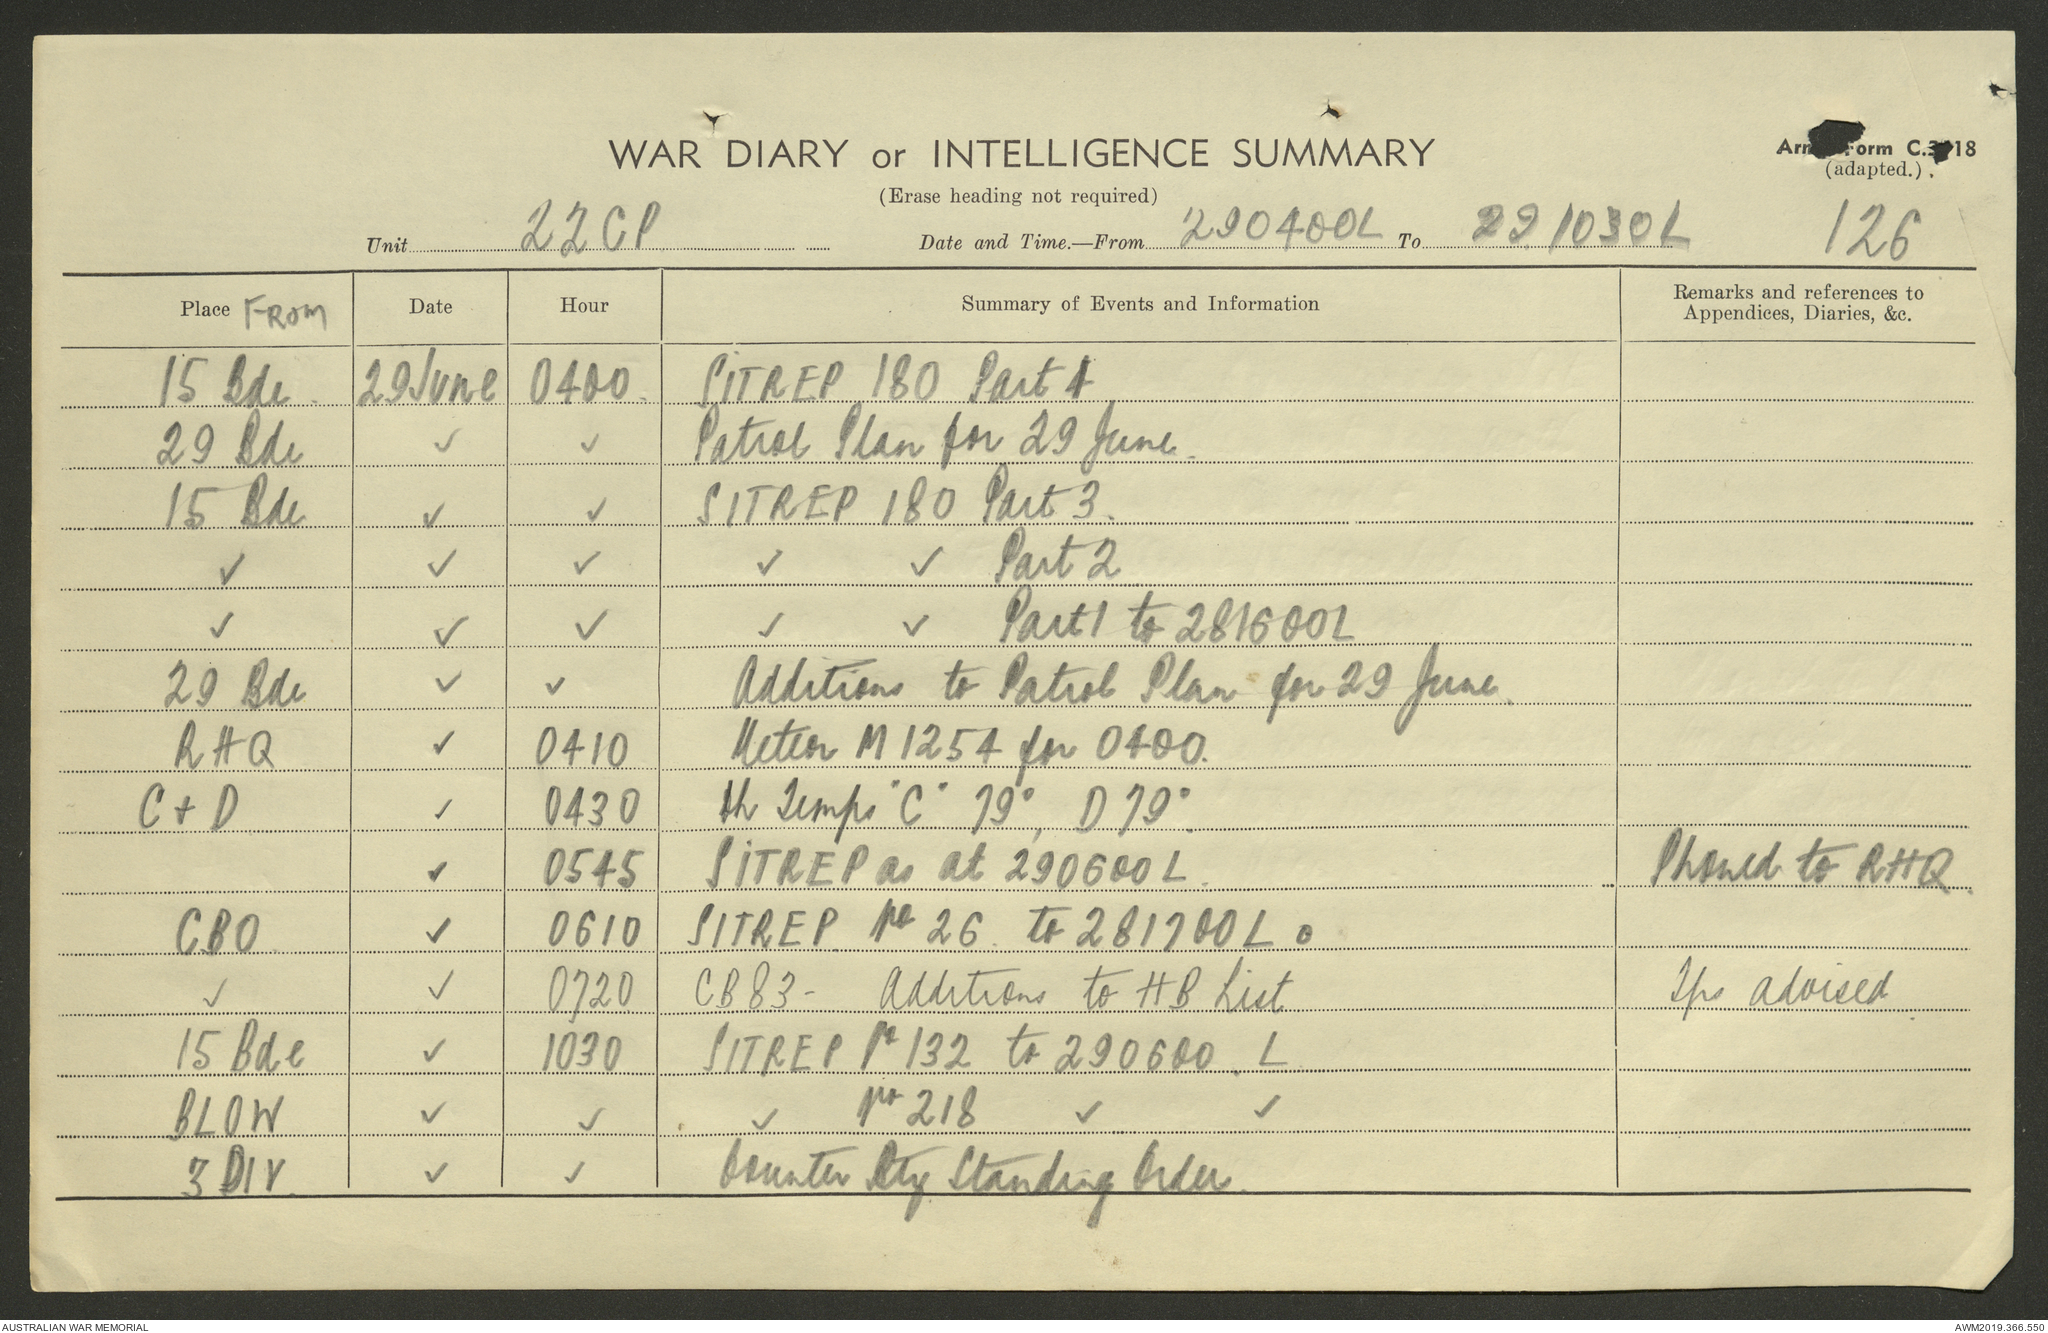 WAR DIARY or INTELLIGENCE SUMMARY
Form C.
18
(adapted.)
(Erase heading not required)
Unit 22 CP Date and Time.—From 290400L To 291030L 126
Place FROM Date Hour Summary of Events and Information Remarks and references to
Appendices, Diaries, &c.
15 Bde. 29 June 0400. SITREP 180 Part 4
29 Bde ✓ ✓ Patrol Plan for 29 June.
15 Bde ✓ ✓ SITREP 180 Part 3.
✓ ✓ ✓ ✓ ✓ Part 2
✓ ✓ ✓ ✓ ✓ Part 1 to 281600L
29 Bde ✓ ✓ Additions to Patrol Plan for 29 June.
RHQ ✓ 0410 Meteor M 1254 for 0400.
C + D ✓ 0430 Temps "C" 79°, D 79°.
✓ 0545 SITREP as at 290600L. Phoned to RHQ.
CBO ✓ 0610 SITREP No 26 to 281700L.
✓ ✓ 0720 CB 83 - Additions to HB List Tps advised
15 Bde ✓ 1030 SITREP No 132 to 290600.L
BLOW ✓ ✓ ✓ No 218 ✓ ✓
3 DIV. ✓ ✓ Counter Bty Standing Order.
AUSTRALIAN WAR MEMORIAL
AWM2019.366.550